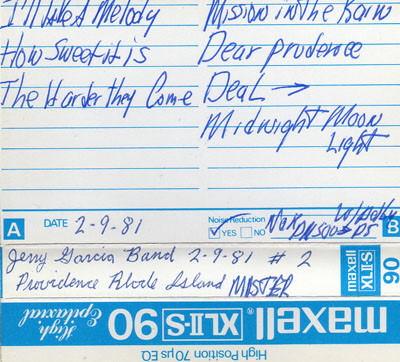 I'll Take A Melody
How Sweet it is
The Harder they Come
Mission in the Rain
Dear prudence
Deal →
Midnight Moon
Light
A
DATE 2-9-81
Noise Reduction
YES NO
Nak
W/dolby
B
Jerry Garcia Band 2-9-81 # 2
Providence Rhode Island MASTER
maxell
XLII-S
90
maxell® XLII-S 90 High Epitaxial
High Position 70 µs EQ